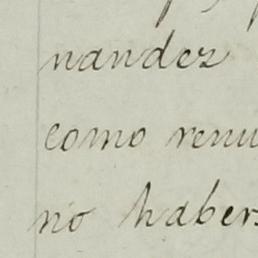 nandez
como renu
no habers